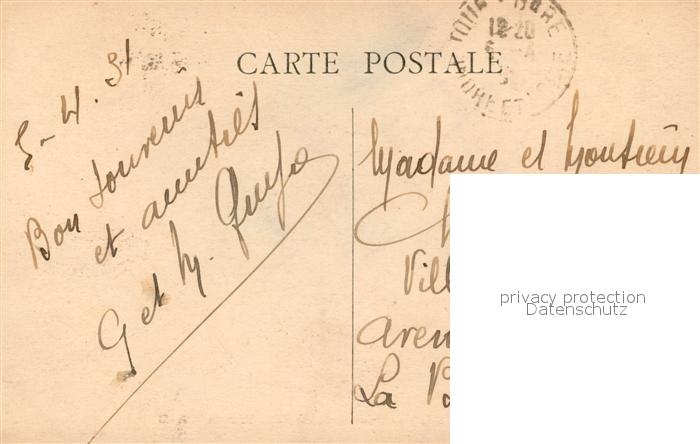 CARTE POSTALE
5-4.31
Bon souvenir
et amitiés
G et M.
Madame et Monsieur
Vill
Aven
La
privacy protection
Datenschutz